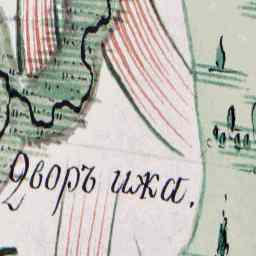 Дворъ ижа.